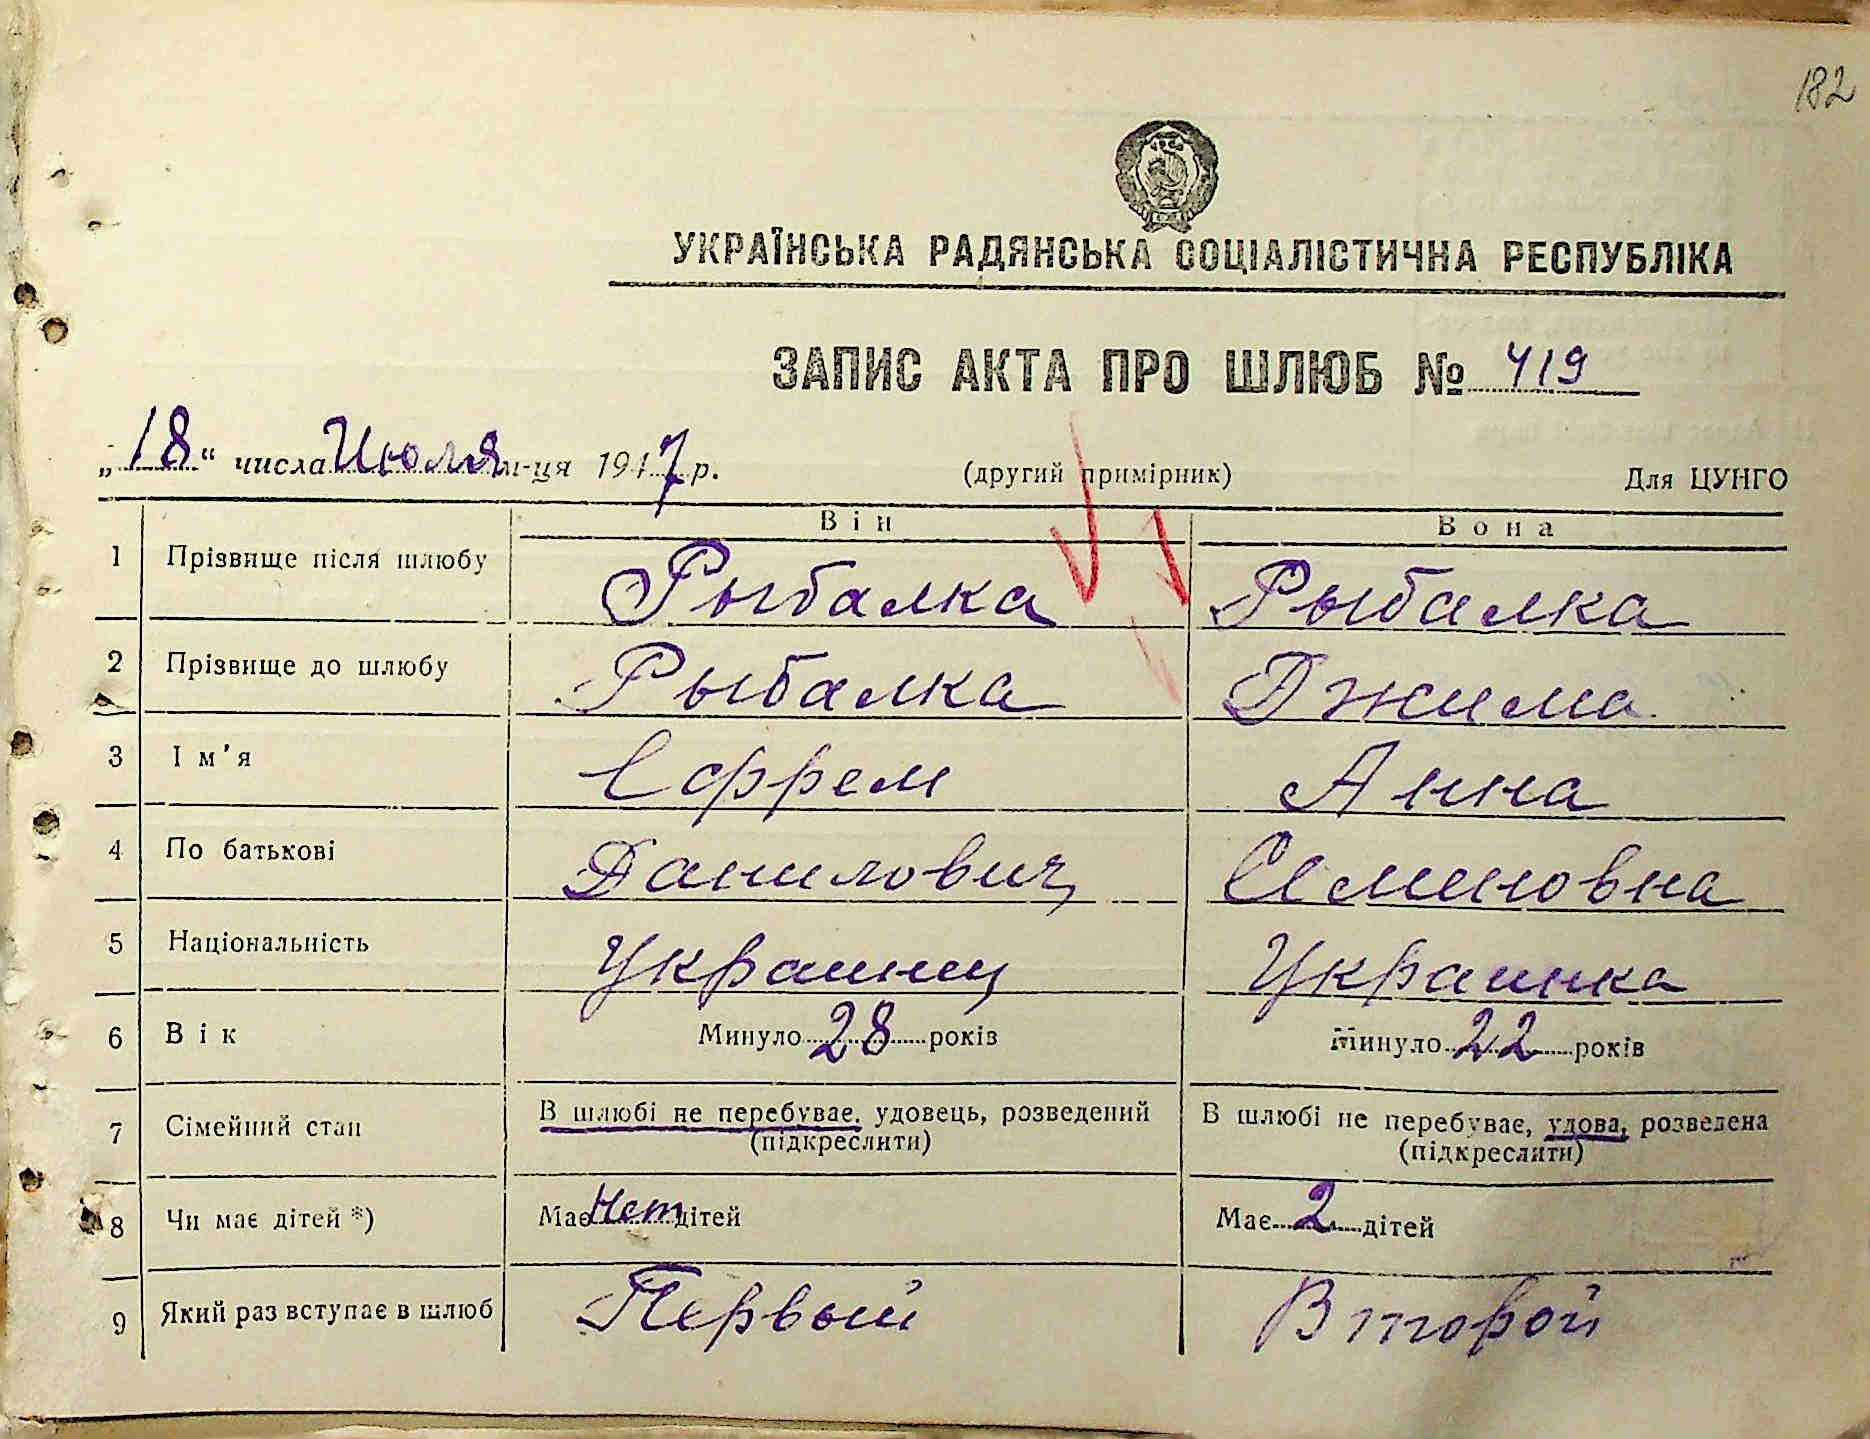 182
УКРАЇНСЬКА РАДЯНСЬКА СОЦІАЛІСТИЧНА РЕСПУБЛІКА
ЗАПИС АКТА ПРО ШЛЮБ № 419
„18“ числа Июля м-ця 1947 р. (другий примірник) Для ЦУНГО
Він Вона
1 Прізвище після шлюбу Рыбалка Рыбалка
2 Прізвище до шлюбу Рыбалка Джима
3 Ім’я Ефрем Анна
4 По батькові Данилович Семеновна
5 Національність Украинец Украинка
6 Вік Минуло 28 років Минуло 22 років
7 Сімейний стан В шлюбі не перебуває, удовець, розведений В шлюбі не перебуває, удова, розведена
(підкреслити) (підкреслити)
8 Чи має дітей *) Має Нет дітей Має 2 дітей
9 Який раз вступає в шлюб Первый Второй